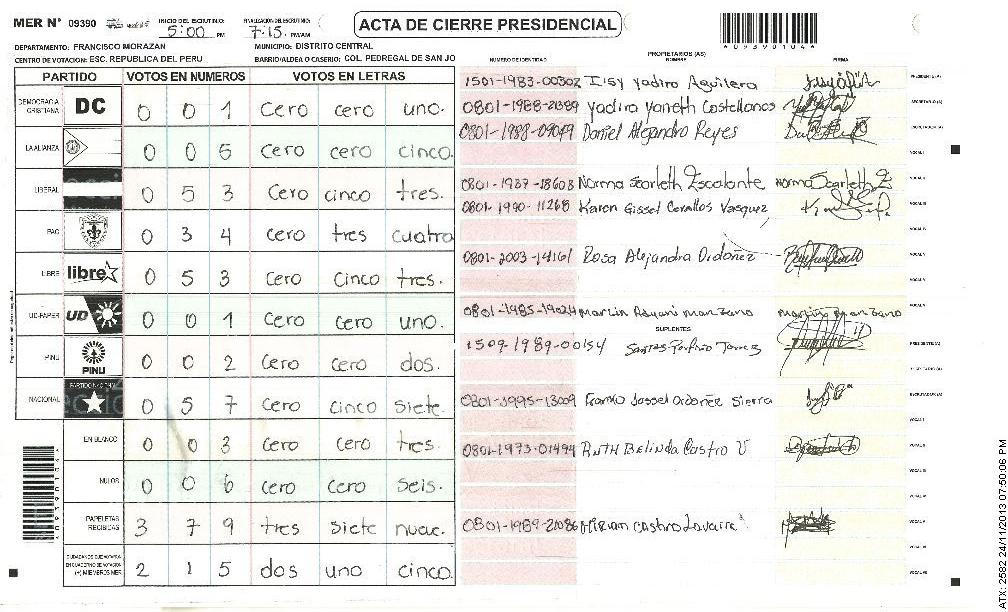 MER N° 09390 INICIO DEL ESCRUTINIO: 5:00 PM FINALIZACION DEL ESCRUTINIO: 7:15 PM/AM
ACTA DE CIERRE PRESIDENCIAL
DEPARTAMENTO: FRANCISCO MORAZAN MUNICIPIO: DISTRITO CENTRAL
CENTRO DE VOTACION: ESC. REPUBLICA DEL PERU BARRIO/ALDEA O CASERIO: COL. PEDREGAL DE SAN JO
PARTIDO VOTOS EN NUMEROS VOTOS EN LETRAS
DEMOCRACIA CRISTIANA DC 0 0 1 cero cero uno.
LA ALIANZA 0 0 5 cero cero cinco.
LIBERAL 0 5 3 Cero cinco tres.
PAC 0 3 4 cero tres cuatro
LIBRE libre 0 5 3 Cero Cinco tres.
UD-FAPER UD 0 0 1 Cero Cero uno.
PINU PINU 0 0 2 Cero cero dos.
NACIONAL PARTIDO NACIONAL 0 5 7 Cero cinco siete.
EN BLANCO 0 0 3 Cero cero tres.
NULOS 0 0 6 cero cero seis.
PAPELETAS RECIBIDAS 3 7 9 tres siete nueve.
CIUDADANOS QUE VOTARON EN CUADERNO DE VOTACION (+) MIEMBROS MER 2 1 5 dos uno cinco.
NUMERO DE IDENTIDAD PROPIETARIOS (AS) NOMBRE FIRMA
1501-1983-00302 Irsy Yadira Aguilera PRESIDENTE (A)
0801-1988-21389 Yadira Yaneth Castellanos SECRETARIO (A)
0801-1988-09049 Daniel Alejandro Reyes ESCRUTADOR (A)
VOCAL I
0801-1987-18608 Norma Scarleth Escalante Norma Scarleth E VOCAL II
0801-1990-11268 Karen Gissel Cevallos Vasquez VOCAL III
VOCAL IV
0801-2003-14161 Rosa Alejandra Ordoñez VOCAL V
0801-1985-19024 Martin Reyani manzano martin manzano
SUPLENTES
1509-1989-00154 Santos Porfirio Torrez PRESIDENTE (A)
SECRETARIO (A)
0801-1995-13009 Franklo Jassel Ordoñez Sierra ESCRUTADOR (A)
VOCAL I
0801-1973-01494 RUTH BELINDA Castro V VOCAL II
VOCAL III
VOCAL IV
0801-1989-21086 Mirian Castro Lavaire VOCAL V
09390104
ATX: 2582 24/11/2013 07:50:06 PM